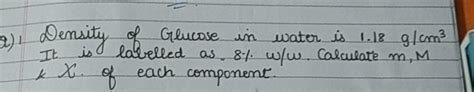 Q) 1 Density of Glucose in water is 1.18 g/cm³
It is labelled as 8% w/w. Calculate m, M
& X. of each component.